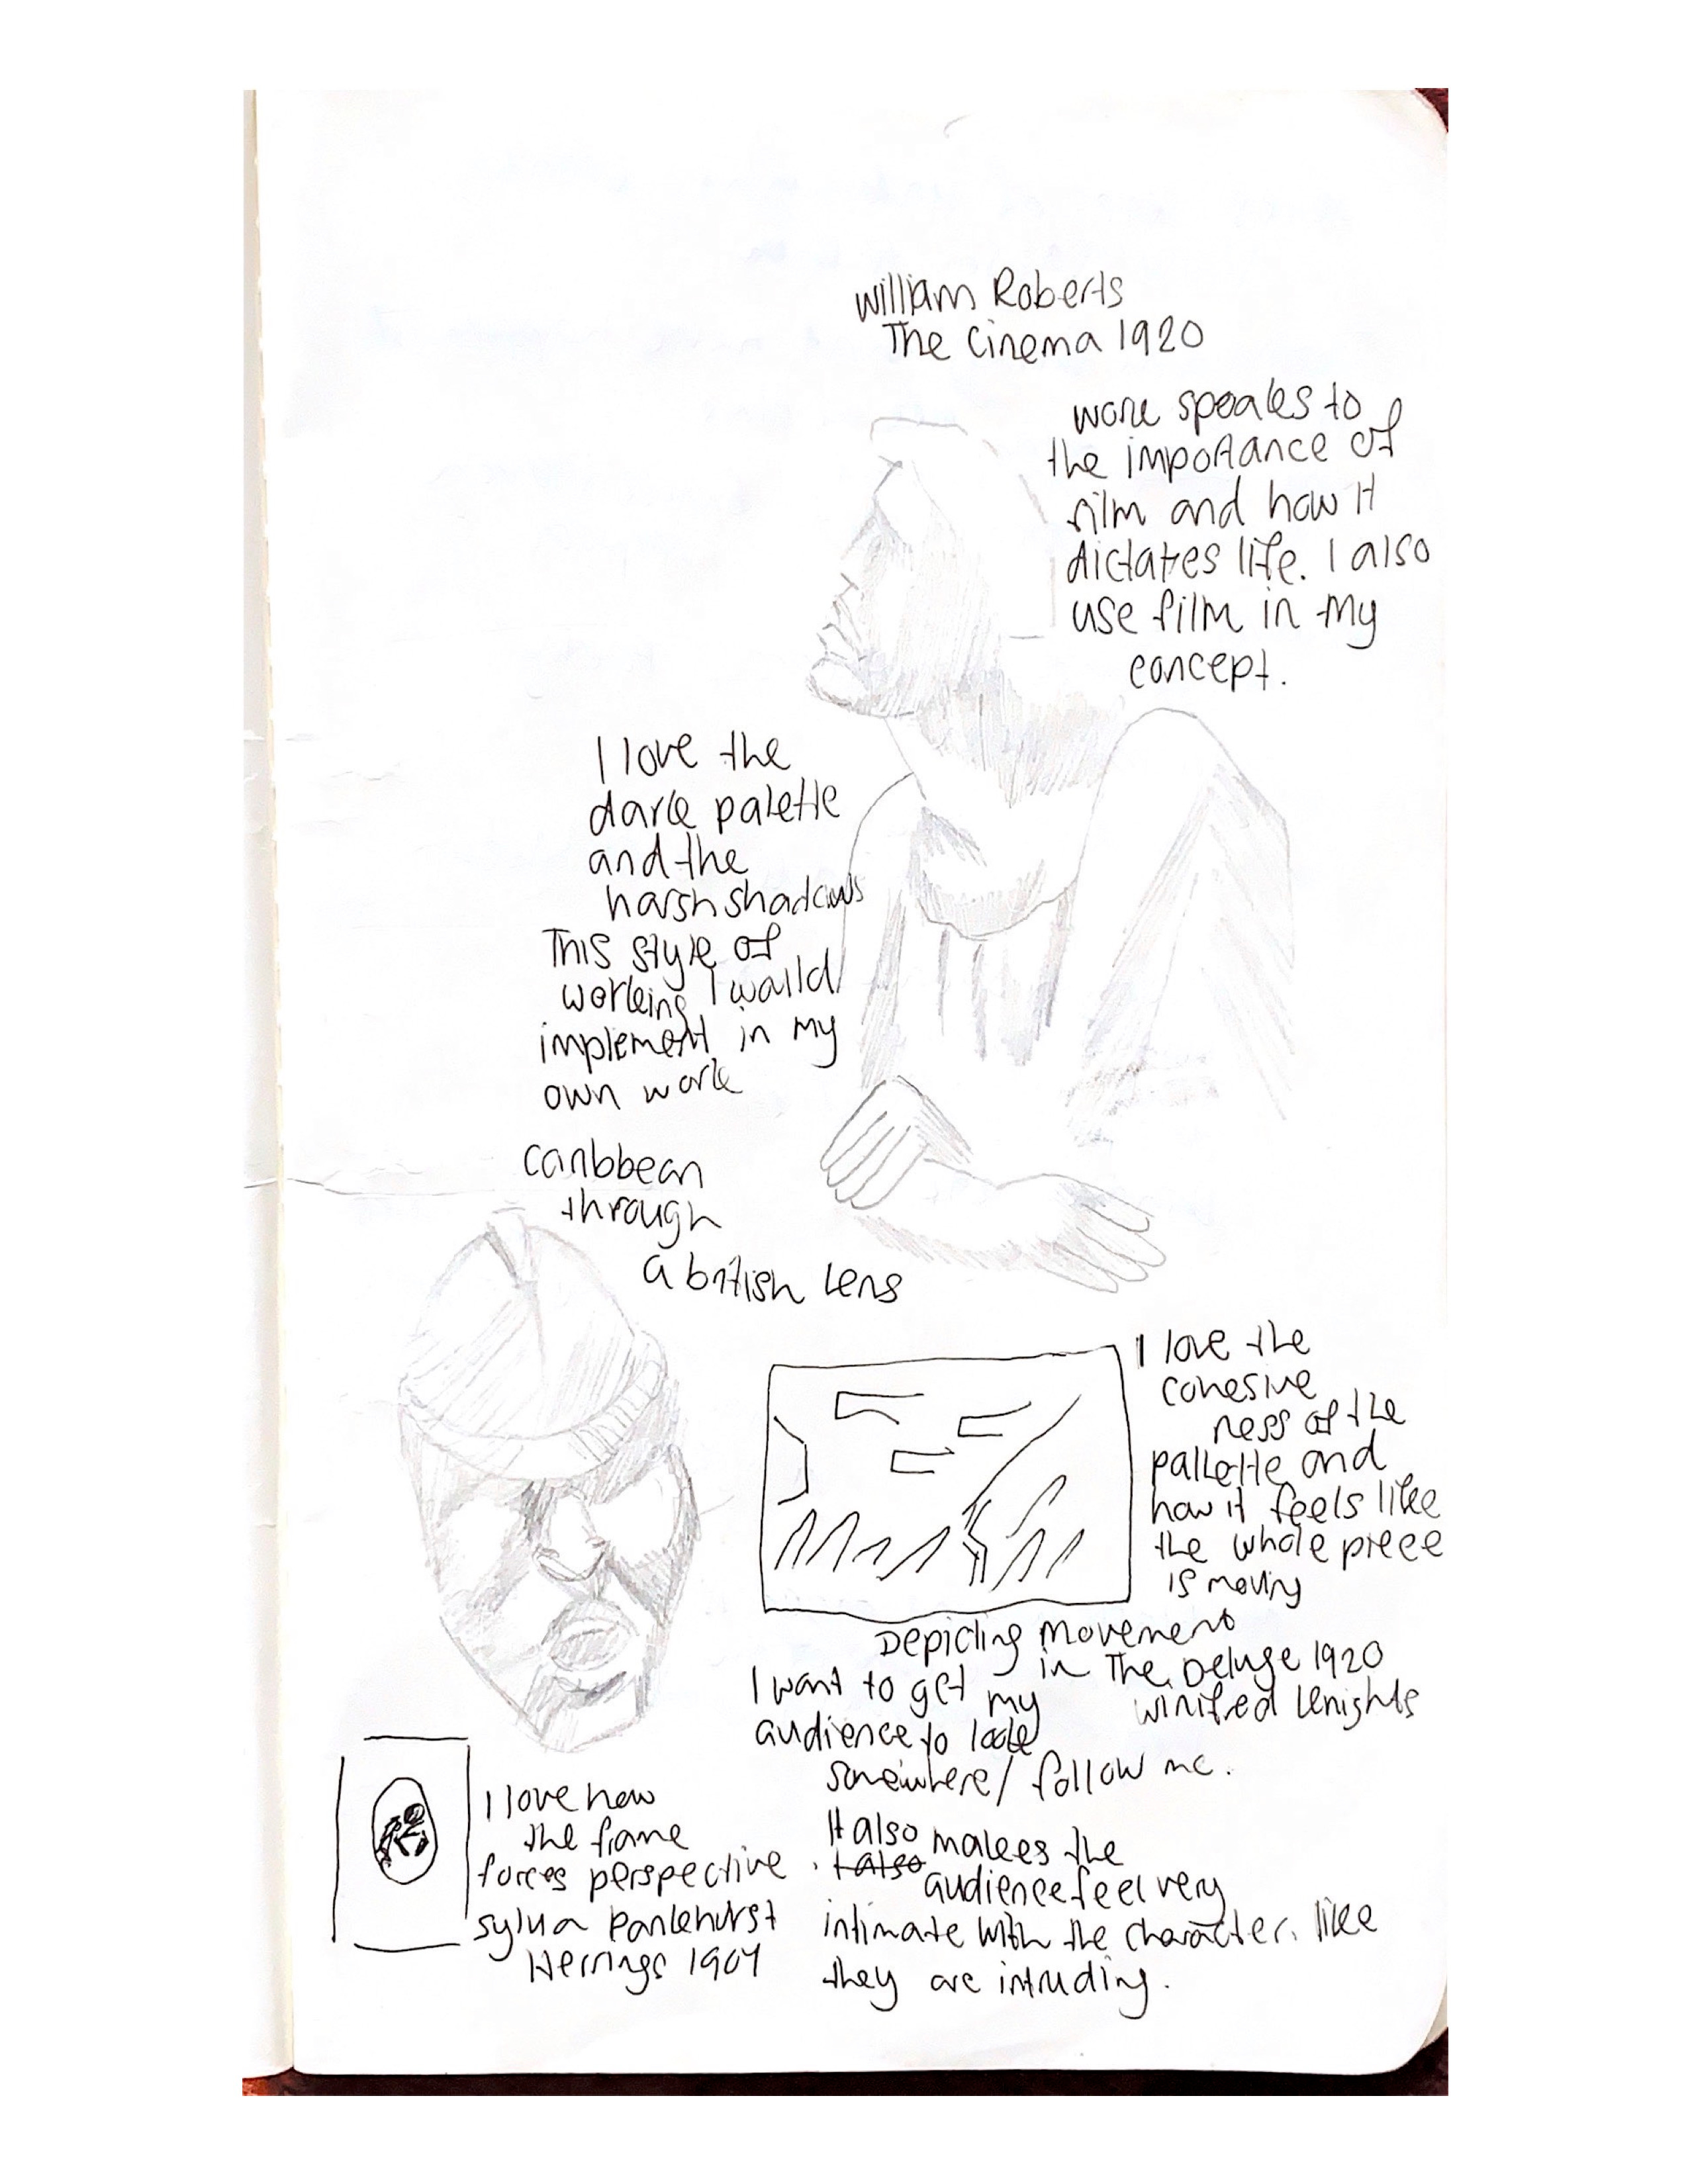 William Roberts
The Cinema 1920
work speaks to
the importance of
film and how it
dictates life. I also
use film in my
concept.
I love the
dark palette
and the
harsh shadows
This style of
working I would
implement in my
own work
Caribbean
through
a british lens
I love the
cohesive
ness of the
pallette and
how it feels like
the whole piece
is moving
Depicting movement
in The Deluge 1920
Winifred Knights
I want to get my
audience to look
somewhere/ follow me.
I love how
the frame
forces perspective.
Sylvia Pankhurst
Herrings 1907
It also makes the
audience feel very
intimate with the character. like
they are intruding.